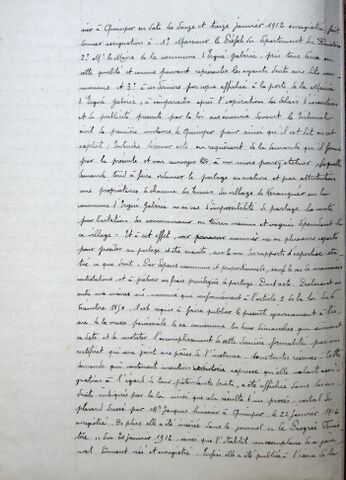 sier à Quimper en date des douze et treize janvier 1912 enregistré, fait
donner assignation à 1º Monsieur le Préfet du département du Finistère
2º Mr le Maire de la commune d'Ergué Gabéric, pris tous deux en
cette qualité et comme pouvant représenter les ayants droits aux dits com-
muneux, et 3º à ces derniers par copie affichée à la porte de la Mairie
d'Ergué Gabéric, à comparaître après l'expiration des délais d'insertions
et de publicité prescrits par la loi sus énoncée devant le Tribunal
civil de première instance de Quimper pour ainsi qu'il est dit au dit
exploit: Entendre donner acte au requérant de la demande qu'il forme
par la présente et voir
demande tend à faire ordonner le partage en nature et par attribution
aux propriétaires à chacune des tenues du village de Keranguéo en la
commune d'Ergué Gabéric ou au cas d'impossibilité de partage, la vente
par licitation des communeux ou terres vaines et vagues dépendant de
ce village. - Et à cet effet, voir nommer un ou plusieurs experts
pour procéder au partage et être ensuite, sur le vu des rapports d'expertise, statué
ce que de droit. Des dépens communs et proportionnels, sauf le cas de mauvaises
contestations, et à prélever en frais privilégiés de partage. Dont acte. Déclarant en
outre que conformément à l'article 2 de la loi du 6
décembre 1850. il est requis à faire publier le présent
de la messe paroissiale de sa commune les deux dimanches qui suivent
sa date et de constater l'accomplissement de cette dernière formalité par un
certificat qui sera joint aux pièces de l'instance. - Sous toutes réserves. - Cette
demande qui contenait mention expresse qu'elle valait assi-
gnation à l'égard de tous prétendants droits, a été affichée dans les en-
droits indiqués par la loi ainsi que cela résulte d'un procès-verbal de
placard dressé par Mr Jacques huissier à Quimper, le 22 janvier 1912
enregistré. De plus elle a été insérée dans le journal « Le Progrès Finis-
tère » du 20 janvier 1912, ainsi que l'établit un exemplaire de ce jour-
nal dûment visé et enregistré. - Enfin elle a été publiée à l'issue de la